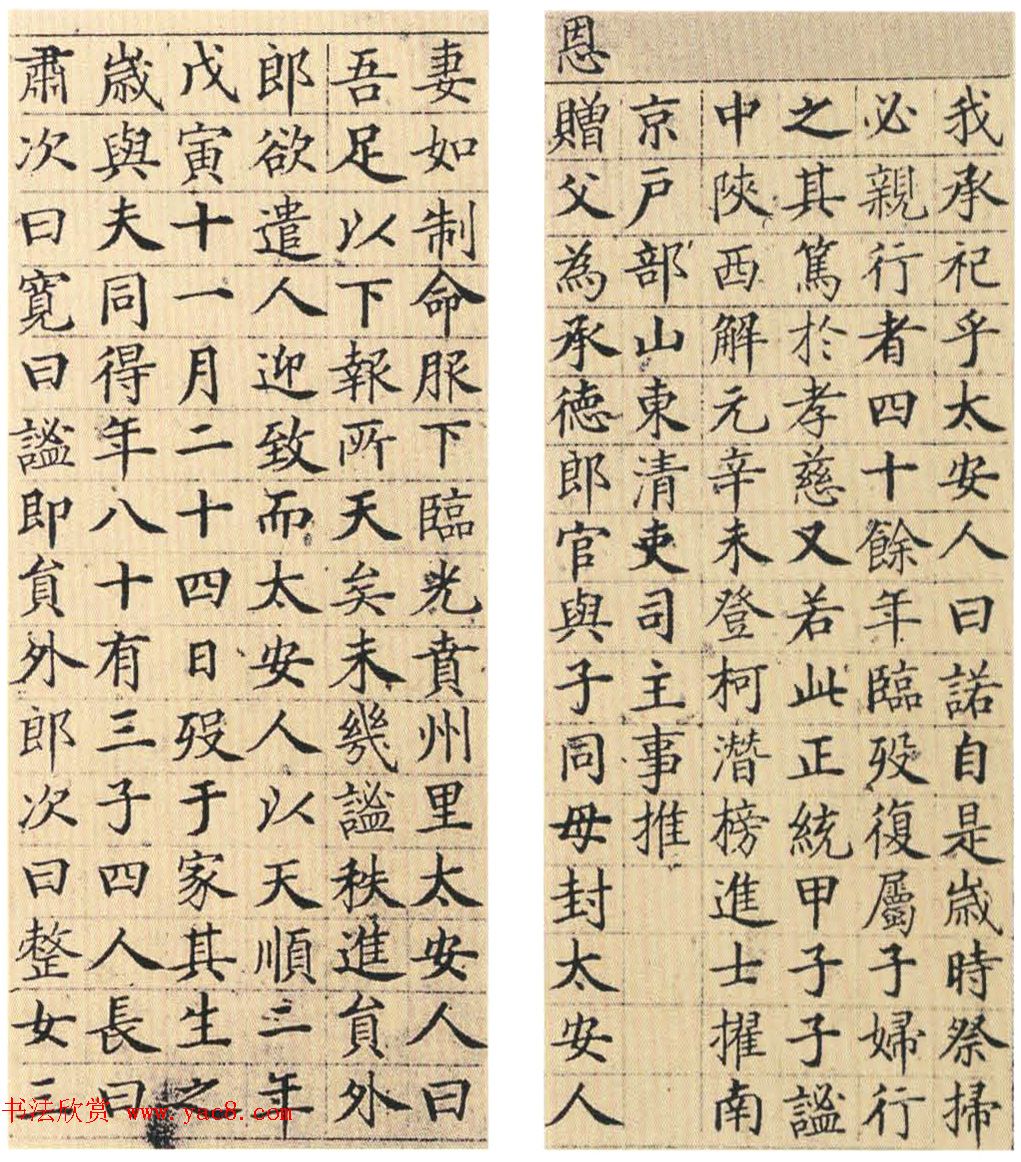 我承祀乎太安人曰諾自是歳時祭掃
必親行者四十餘年臨歿復屬子婦行
之其篤於孝慈又若此正統甲子子謐
中陝西解元辛未登柯潛榜進士擢南
京戸部山東清吏司主事推
恩贈父為承徳郎官與子同母封太安人
妻如制命服下臨光賁州里太安人曰
吾足以下報所天矣未幾謐秩進貟外
郎欲遣人迎致而太安人以天順二年
戊寅十一月二十四日歿于家其生之
歳與夫同得年八十有三子四人長曰
肅次曰寛曰謐即貟外郎次曰整女二
书法欣赏 www.yac8.com